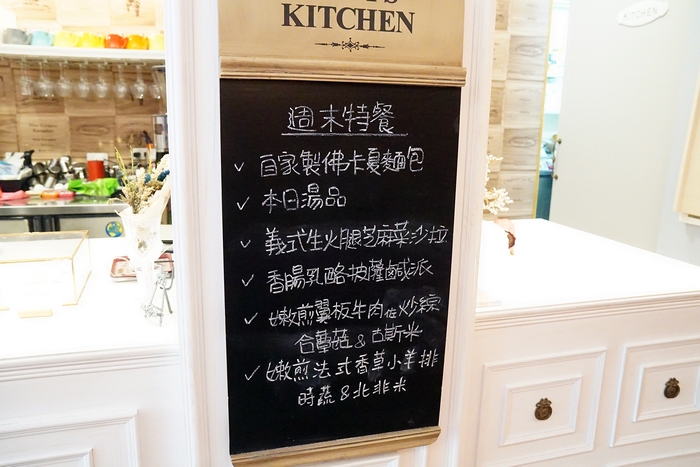 KITCHEN
KITCHEN
週末特餐
✓ 自家製佛卡夏麵包
✓ 本日湯品
✓ 義式生火腿芝麻菜沙拉
✓ 香腸乳酪披薩鹹派
✓ 嫩煎翼板牛肉佐炒綜
合蘑菇&古斯米
✓ 嫩煎法式香草小羊排
時蔬&北非米